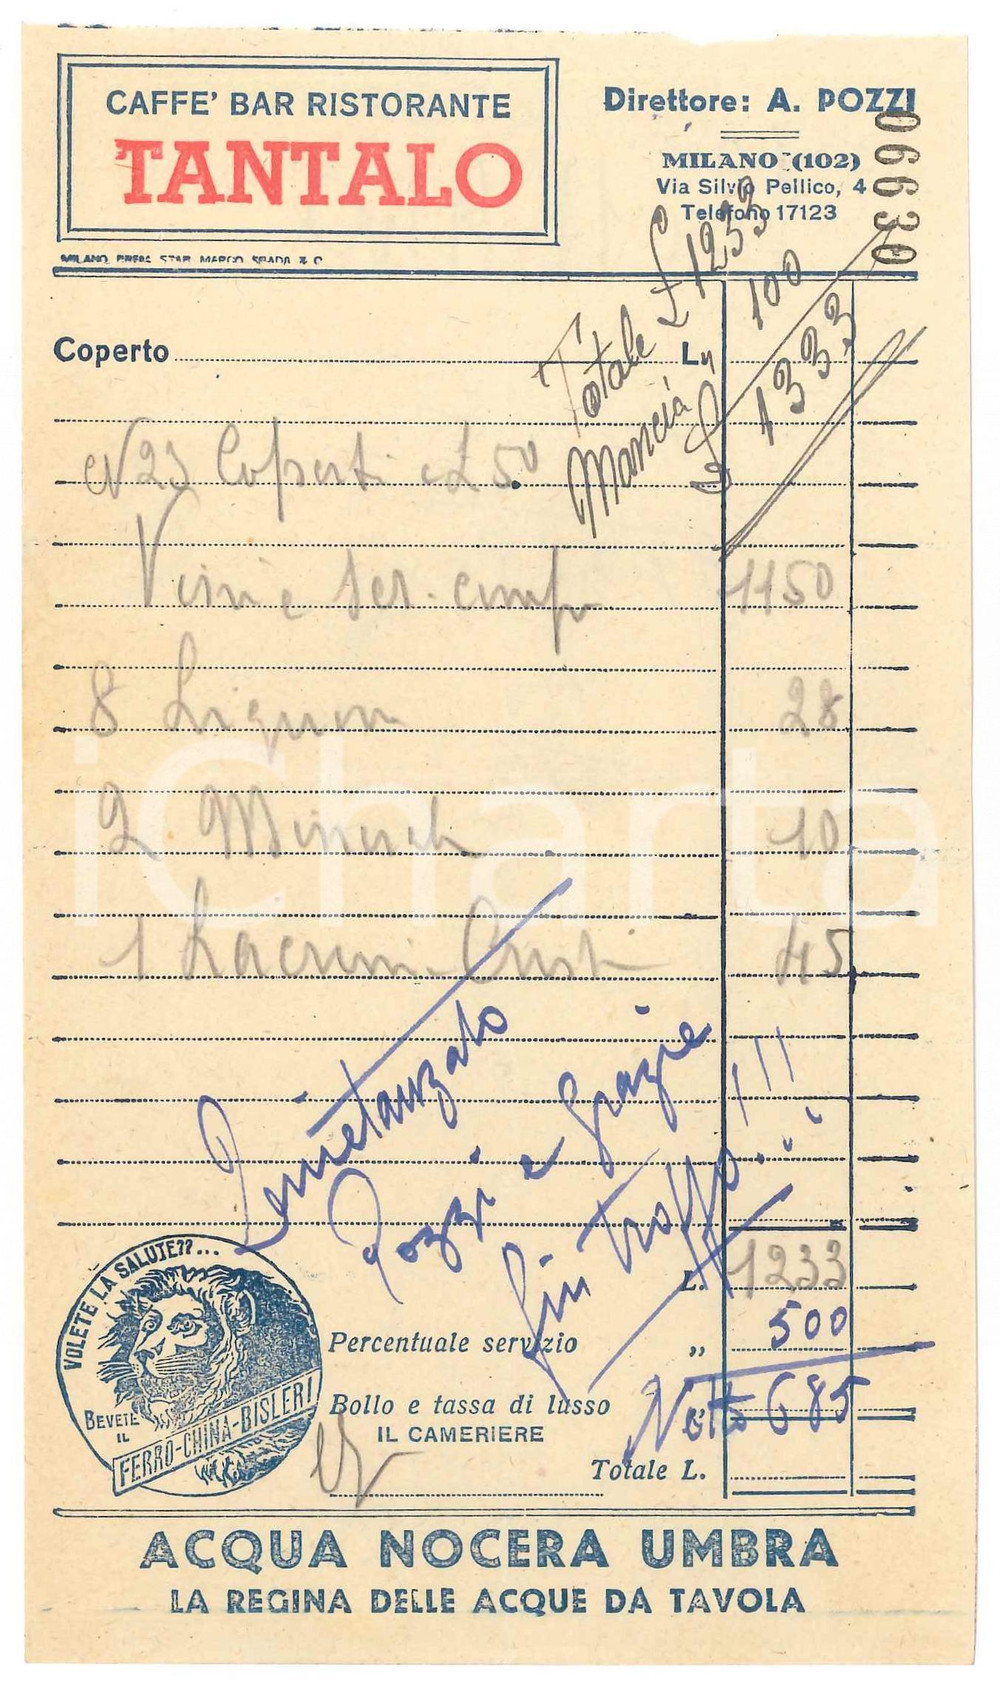 CAFFE' BAR RISTORANTE
TANTALO
Direttore: A. POZZI
MILANO (102)
Via Silvio Pellico, 4
Telefono 17123
06630
MILANO, BREFA, STAB. MARCO SPADA & C.
Totale £ 1233
Mancia " 100
£ 1333
Coperto L.
N 23 Coperti a £ 50
Vini e ser. comp 1150
8 Liquori 28
2 Minerali 10
1 Lacrima Cristi 45
Quietanzato
Pozzi e grazie
fin troppo!!!
L. 1233
Percentuale servizio „ 500
Bollo e tassa di lusso
Netto 685
IL CAMERIERE
Totale L.
VOLETE LA SALUTE??...
BEVETE
IL
FERRO-CHINA-BISLERI
ACQUA NOCERA UMBRA
LA REGINA DELLE ACQUE DA TAVOLA
iCharta